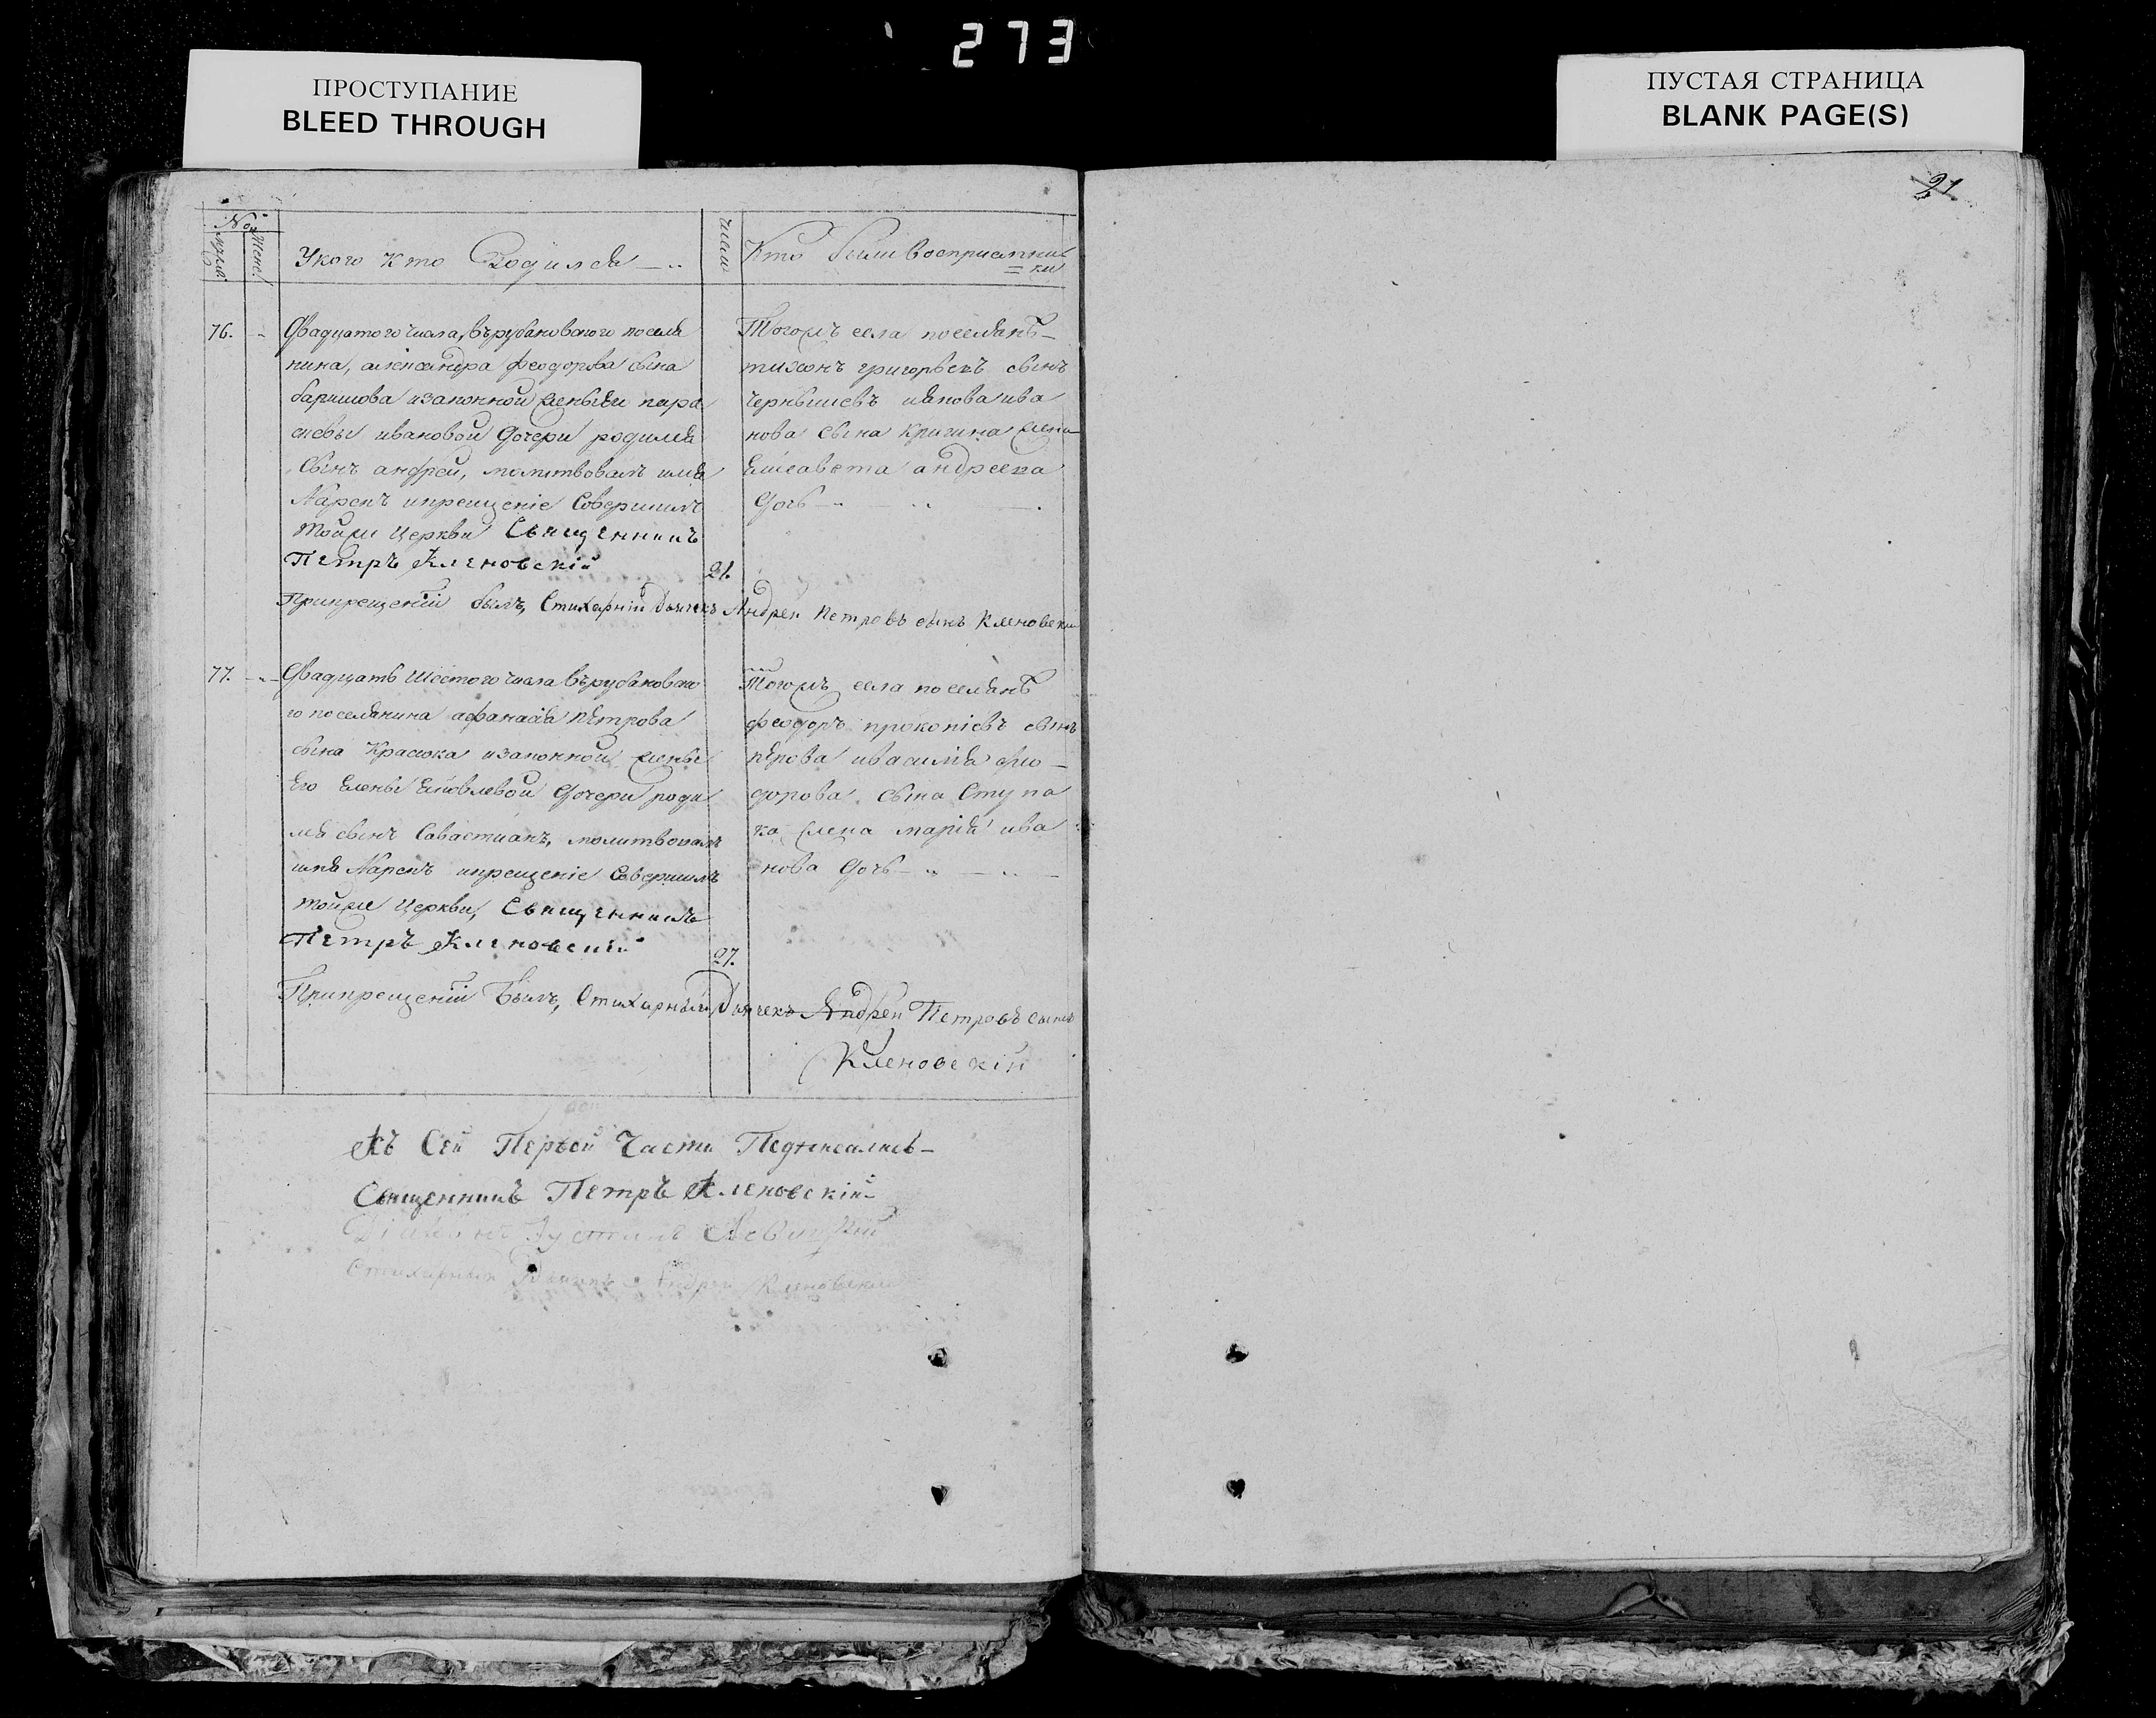 273
ПРОСТУПАНИЕ
BLEED THROUGH
ПУСТАЯ СТРАНИЦА
BLANK PAGE(S)
21
№
мужес:
Женс:
Укого кто Родился
число
Кто были восприемни=
ки
76.
Двадцатого числа, върубановского поселя
нина, александра феодорова сына
баришова изаконной жены
ивановой дочери родился
сынъ андрей, молитвовалъ имя
Нарекъ икрещеніе Совершилъ
тойже Церкви Священникъ
Петръ Кленовскій
21.
Тогожъ села поселянъ
тихонъ григорьевъ сынъ
чернышевъ ива
нова сына жена
Елисавета андреева
дочь
Прикрещеніи былъ, Стихарній Дьячекъ Андрей Петровъ сынъ Кленовскій
77.
Двадцать Шестого числа върубановско
го поселянина афанасія петрова
сына Красюка изаконной жены
Его Елены Яковлевой дочери роди
лся сынъ Савастианъ, молитвовалъ
имя Нарекъ икрещеніе Совершилъ
тойже Церкви, Священникъ
Петръ Кленовскій
27.
Тогожъ села поселянъ
феодоръ прокопіевъ сынъ
ивасилія фио
дорова сына Ступа
ка жена марія ива
нова дочь
Прикрещеніи Былъ, Стихарный Дьячекъ Андрей Петровъ сынъ
Кленовскій
Къ Сей Первой Части Подписались
Священникъ Петръ Кленовскій
Діаконъ Іустинъ Левицкій
Стихарный Дьячекъ Андрей Кленовскій